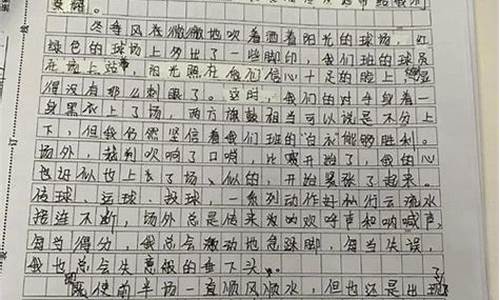 冬季风在微微地吹着洒着阳光的球场，红
绿色的球场上多出了一些脚印，我们班的球员
在场上站，阳光照在他们信心十足的脸上
得没有那么刺眼了。这时，我们的对手身着一
身黑衣上了场，两方旗鼓相当可以说是不分上
下，但我仍然坚信着我们班的"白衣能够胜利。
场外，裁判吹响了口哨，比赛开始了，我的心
也似也上了场、似的，开始紧张了起来。
传球、运球、投球，一系列动作行云流水
接连不断，场外总是传来欢呼声和呐喊声，
每当得分，我总会激动地跺脚，每当失误，
我也总会失意般的垂下头。
既使前半场一直顺风顺水，但也还是出现